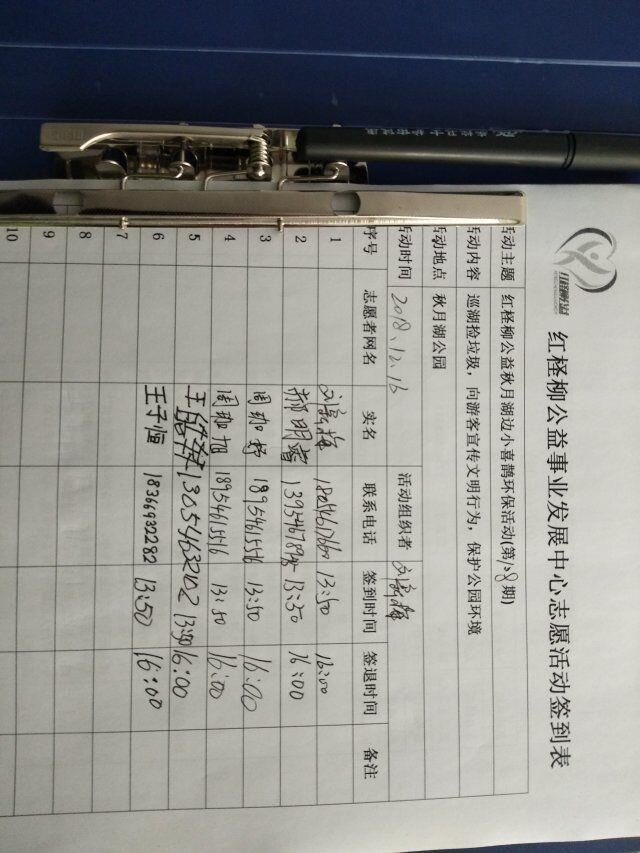 红柽柳公益事业发展中心志愿活动签到表
活动主题 红柽柳公益秋月湖边小喜鹊环保活动(第108期)
活动内容 巡湖捡垃圾，向游客宣传文明行为，保护公园环境
活动地点 秋月湖公园
活动时间 2018.12.16 活动组织者
序号 志愿者网名 实名 联系电话 签到时间 签退时间 备注
1 13:50 16:00
2 郝明睿 13:50 16:00
3 周珈扬 18954615516 13:50 16:00
4 周珈旭 18954615516 13:50 16:00
5 13054632102 13:50 16:00
6 王子恒 18366932282 13:50 16:00
7
8
9
10